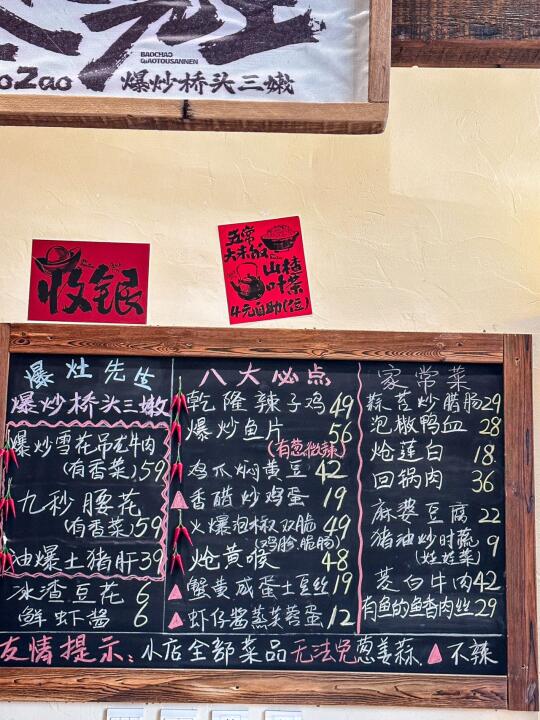 BAOCHAO
QIAOTOUSANNEN
oZao
爆炒桥头三嫩
收银
五常
大米饭
山楂
叶茶
4元自助(位)
爆灶先生
爆炒桥头三嫩
爆炒雪花吊龙牛肉
(有香菜)59
九秒腰花
(有香菜)59
油爆土猪肝39
冰渣豆花 6
鲜虾酱 6
八大必点
乾隆辣子鸡49
爆炒鱼片 56
(有葱微辣)
鸡爪焖黄豆 42
▲香醋炒鸡蛋 19
火爆泡椒双脆 49
(鸡胗脆肠)
炝黄喉 48
▲蟹黄咸蛋土豆丝19
▲虾仔酱蒸芙蓉蛋 12
家常菜
蒜苔炒腊肠29
泡椒鸭血 28
炝莲白 18
回锅肉 36
麻婆豆腐 22
猪油炒时蔬 9
(娃娃菜)
茭白牛肉42
有鱼的鱼香肉丝29
友情提示:小店全部菜品无法免葱姜蒜 ▲不辣